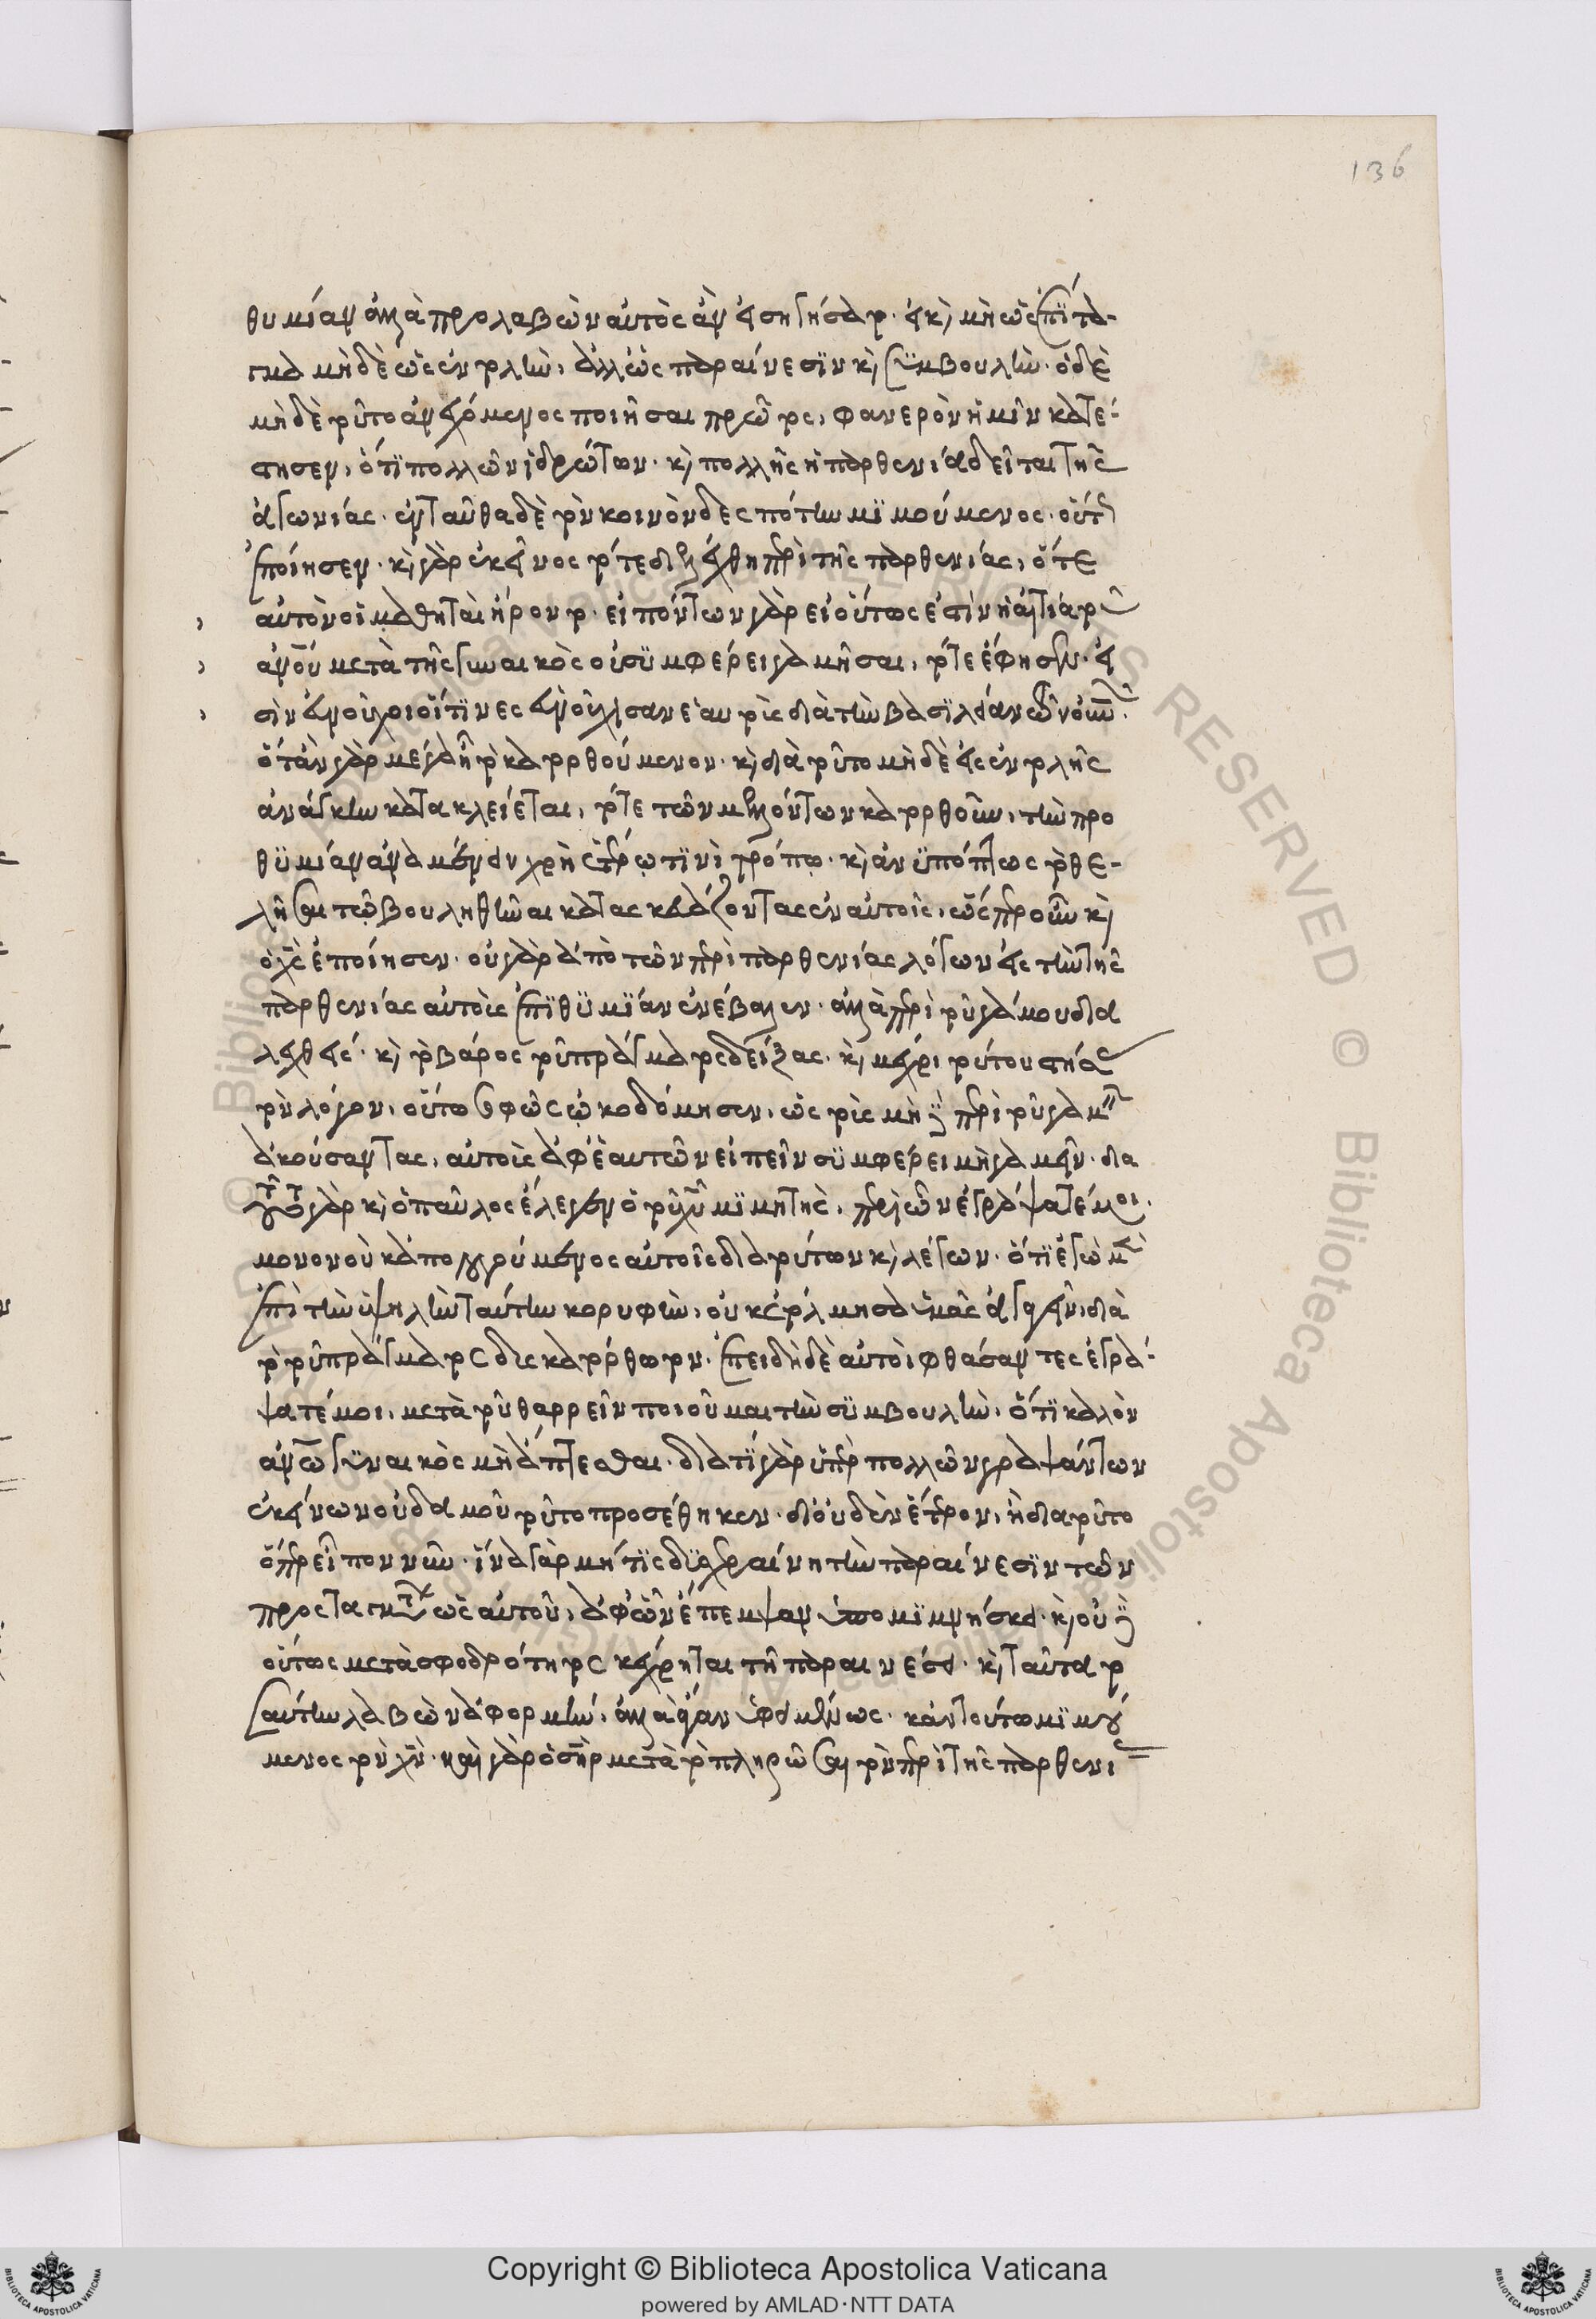 136
θυμίαν ἀλλὰ προλαβὼν αὐτὸς ἂν εἰσηγήσατο. εἰ κ(αὶ) μὴ ὡς ἐπίτα-
γμα μηδὲ ὡς ἐντολὴν, ἀλλ' ὡς παραίνεσϊν κ(αὶ) συμβουλήν. ὁ δὲ
μηδὲ τοῦτο ἀνασχόμενος ποιῆσαι πρῶτος, φανερὸν ἡμῖν κατέ-
στησεν, ὅτϊ πολλῶν ἱδρώτων. κ(αὶ) πολλῆς ἡ παρθενία δεῖται τῆς
ἀγωνίας. ἐνταῦθα δὲ τὸν κοινὸν δεσπότην μϊμούμενος. οὕτως
ἐποίησεν. κ(αὶ) γὰρ ἐκεῖνος τότε διελέχθη περὶ τῆς παρθενίας, ὅτε
αὐτὸν οἱ μαθηταὶ ἤροντο. εἰπόντων γὰρ εἰ οὕτως ἐστὶν ἡ αἰτία τοῦ
ἀνου μετὰ τῆς γυναικὸς οὐ σϋμφέρει γαμῆσαι, τότε ἔφησεν. εἰ
σὶν εὐνοῦχοι οἵτϊνες εὐνούχισαν ἑαυτοὺς διὰ τὴν βασϊλείαν τῶν οὐνῶν.
ὅταν γὰρ μέγα ᾖ τὸ κατορθούμενον. κ(αὶ) διὰ τοῦτο μηδὲ εἰς ἐντολῆς
ἀνάγκην κατακλείεται, τότε τῶν μελλόντων κατορθοῦν, τὴν προ
θϋμίαν ἀναμένειν χρὴ ἑτέρῳ τϊνὶ τρόπῳ. κ(αὶ) ἀνϋπόπτως τὸ θε-
λῆσαι τῷ βουληθῆναι κατασκευάζοντας ἐν αὐτοῖς, ὥσπερ οὖν κ(αὶ)
ὁ χς ἐποίησεν. οὐ γὰρ ἀπὸ τῶν περὶ παρθενίας λόγων εἰς τὴν τῆς
παρθενίας αὐτοῖς ἐπϊθϋμίαν ἐνέβαλεν. ἀλλὰ περὶ τοῦ γάμου δια
λεχθεὶς. κ(αὶ) τὸ βάρος τοῦ πράγματος δείξας. κ(αὶ) μέχρι τούτου στήσας
τὸν λόγον, οὕτω σοφῶς ᾠκοδόμησεν, ὡς τοὺς μηδὲν περὶ τοῦ γάμου
ἀκούσαντας, αὐτοὺς ἀφ' ἑαυτῶν εἰπεῖν σϋμφέρει μὴ γαμεῖν. δια
τοῦτο γὰρ κ(αὶ) ὁ παῦλος ἔλεγεν ὁ τοῦ χυ μϊμητὴς, περὶ ὧν ἐγράψατέ μοι.
μονονοὺκ ἀπολογούμενος αὐτοῖς διὰ τούτων κ(αὶ) λέγων. ὅτϊ ἐγὼ μὲν
ἐπὶ τὴν ὑψηλὴν ταύτην κορυφὴν, οὐκ ἐτόλμησα ὑμᾶς ἀγαγεῖν, διὰ
τὸ τοῦ πράγματος δυσκατόρθωτον. ἐπειδὴ δὲ αὐτοὶ φθάσαντες ἐγρά-
ψατέ μοι, μετὰ τοῦ θαρρεῖν ποιοῦμαι τὴν σϋμβουλὴν, ὅτϊ καλὸν
ἀνῳ γϋναικὸς μὴ ἅπτεσθαι. διατΐ γὰρ ὑπὲρ πολλῶν γραψάντων
ἐκείνων οὐδαμοῦ τοῦτο προσέθηκεν. δι' οὐδὲν ἕτερον, ἢ δια τοῦτο
ὅπερ εἶπον νῦν. ἵνα γὰρ μήτϊς δϋσχεραίνῃ τὴν παραίνεσϊν τῶν
προς ταγμάτων ὡς αὐτοῦ, ἀφ' ὧν ἔπεμψαν ὑπομϊμνήσκει. κ(αὶ) οὐδὲν
οὕτως μετὰ σφοδρότητος κέχρηται τῇ παραινέσει. κ(αὶ) ταῦτα το
σαύτην λαβὼν ἀφορμὴν, ἀλλὰ λίαν ὑφειμένως. κἀν τούτῳ μϊμού
μενος τὸν χν. καὶ γὰρ ὁ σὴρ μετὰ τὸ πληρῶσαι τὸν περὶ τῆς παρθενί
Copyright © Biblioteca Apostolica Vaticana
powered by AMLAD·NTT DATA